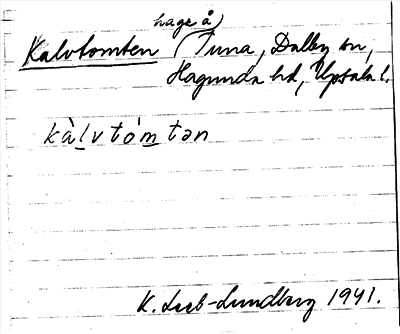 hage å
Kalvtomten (Tuna, Dalby sn,
Hagunda hd, Upsala l.
kàlvtòmtən
K. Leeb-Lundberg 1941.